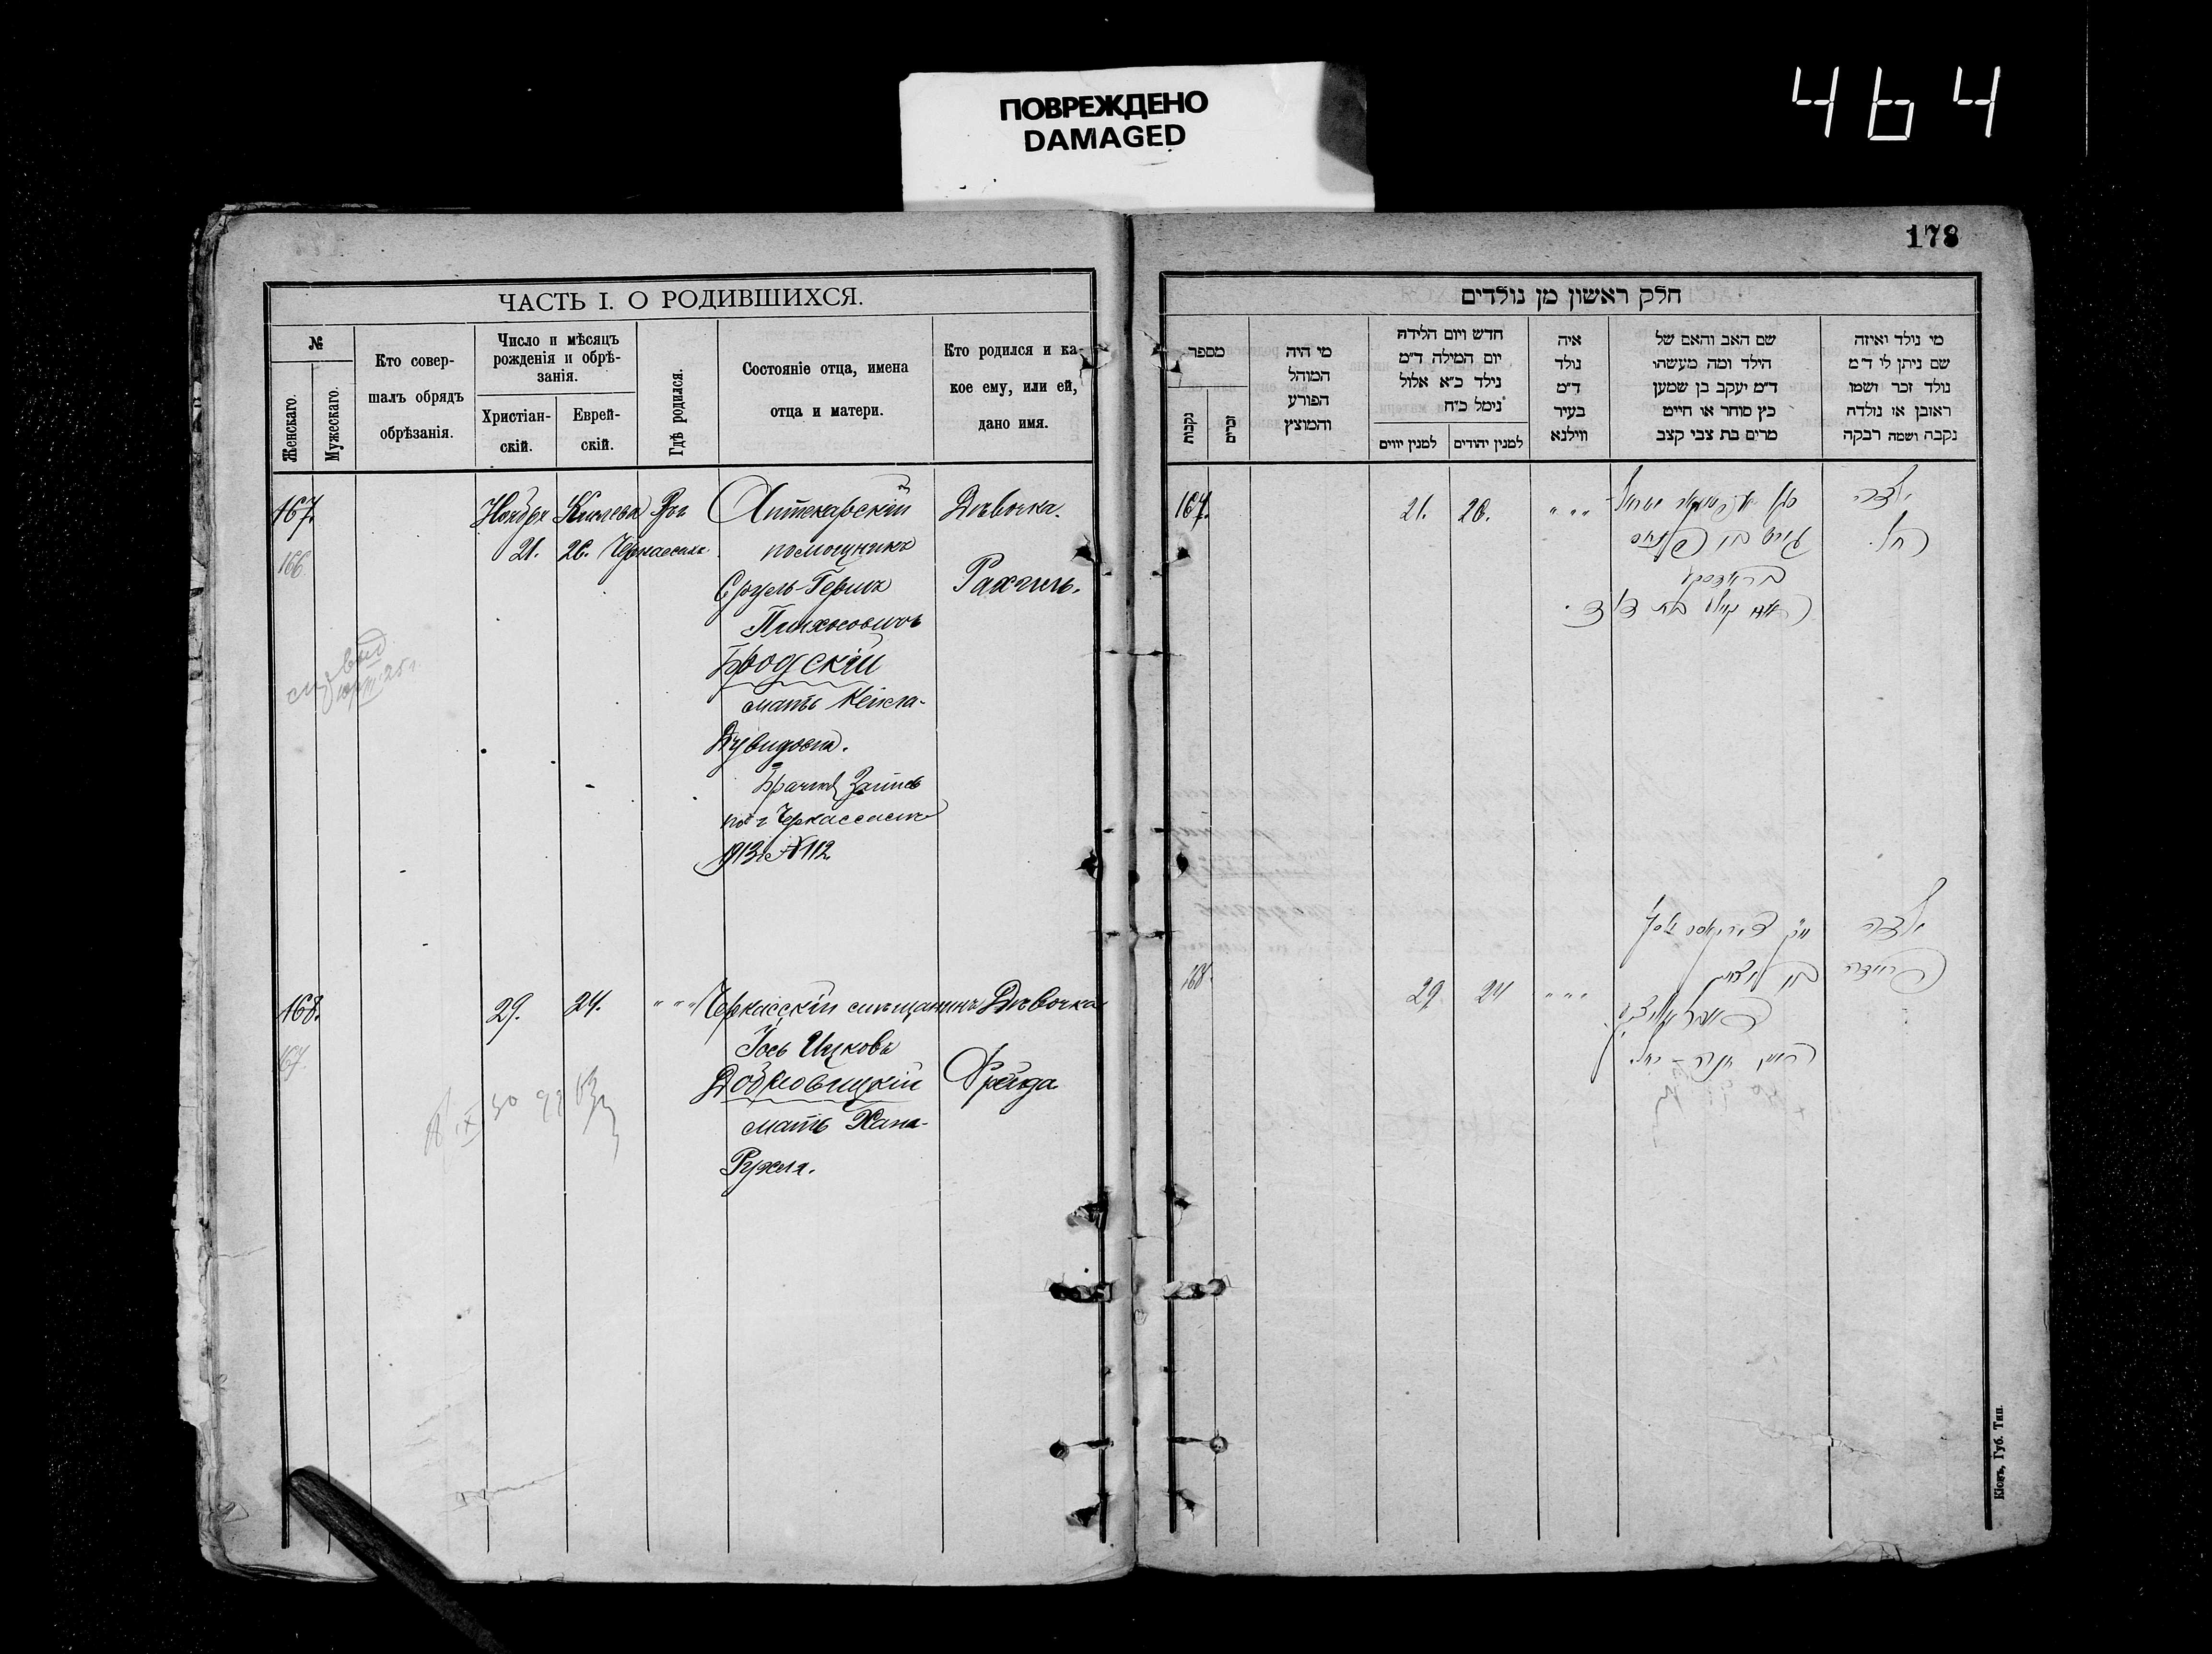 ПОВРЕЖДЕНО
DAMAGED
464
178
ЧАСТЬ I. О РОДИВШИХСЯ.
№
Женскаго.
Мужескаго.
Кто совер-
шалъ обрядъ
обрѣзанія.
Число и мѣсяцъ
рожденія и обрѣ-
занія.
Христіан-
скій.
Еврей-
скій.
Гдѣ родился.
Состояніе отца, имена
отца и матери.
Кто родился и ка-
кое ему, или ей,
дано имя.
167.
166
Ноября
21.
Кислева
26.
Черкассахъ
Аптекарскій
помощникъ
Сруель-Гершъ
Пинхосовичъ
Бродскій
мать Кейла-
Дувидовна.
Брачная Запись
по г Черкассам
1913 г № 112.
Дѣвочка.
Рахиль.
168.
167
29.
24.
" " "
Черкасскій мѣщанинъ
Іось Ицковъ
Добровицкій
мать Хана-
Рухля.
Дѣвочка
Фрейда
חלק ראשון מן נולדים
מספר
נקבות
זכרים
מי היה
המוהל
הפורע
והמוצץ
חדש ויום הלידה
יום המילה ד״מ
נילד כ״א אלול
נימל כ״ח
למנין יוונים
למנין יהודים
איה
נולד
ד״מ
בעיר
ווילנא
שם האב והאם של
הילד ומה מעשהו
ד״מ יעקב בן שמען
כץ סוחר או חייט
מרים בת צבי קצב
מי נולד ואיזה
שם ניתן לו ד״מ
נולד זכר ושמו
ראובן או נולדה
נקבה ושמה רבקה
167.
21.
26.
" " "
ילדה
רחל.
בן
בת דוד.
168.
29
24
" " "
ילדה
פריידה
בן
חנה - רחל.
Кіевъ, Губ. Тип.